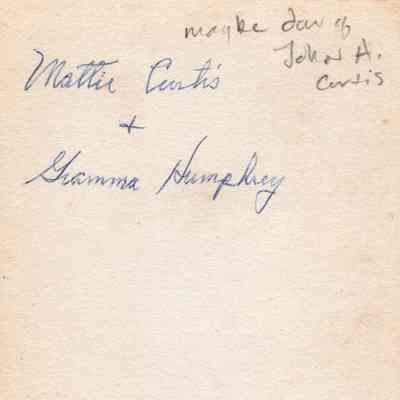 maybe dau of
John A.
Curtis
Mattie Curtis
+
Gramma Humphrey